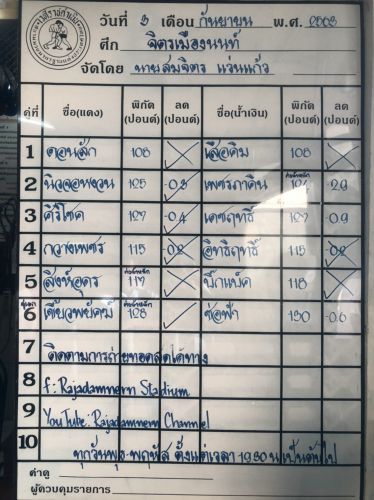 วันที่ 3 เดือน กันยายน พ.ศ. 2563
ศึก จิตรเมืองนนท์
จัดโดย นายสมจิตร แว่นแก้ว
คู่ที่ ชื่อ(แดง) พิกัด (ปอนด์) ลด (ปอนด์) ชื่อ(น้ำเงิน) พิกัด (ปอนด์) ลด (ปอนด์)
1 ดอนสัก 108 เสือคิม 108
2 125 -0.3 เพชรภาคิน 124 -2.9
3 ศิริโชค 127 -0.4 เดชฤทธิ์ 127 -0.9
4 กวางเพชร 115 -0.2 อิทธิฤทธิ์ 115 -0.2
5 สิงห์อุดร 117 บิ๊กแบค 118
6 เขี้ยวพยัคฆ์ 128 ช่อฟ้า 130 -0.6
7 ติดตามการถ่ายทอดสดได้ทาง
8 f: Rajadamnern Stadium
9 YouTube: Rajadamnern Channel
10 ทุกวันพุธ-พฤหัส ตั้งแต่เวลา 19.30 น เป็นต้นไป
ค่าดู
ผู้ควบคุมรายการ